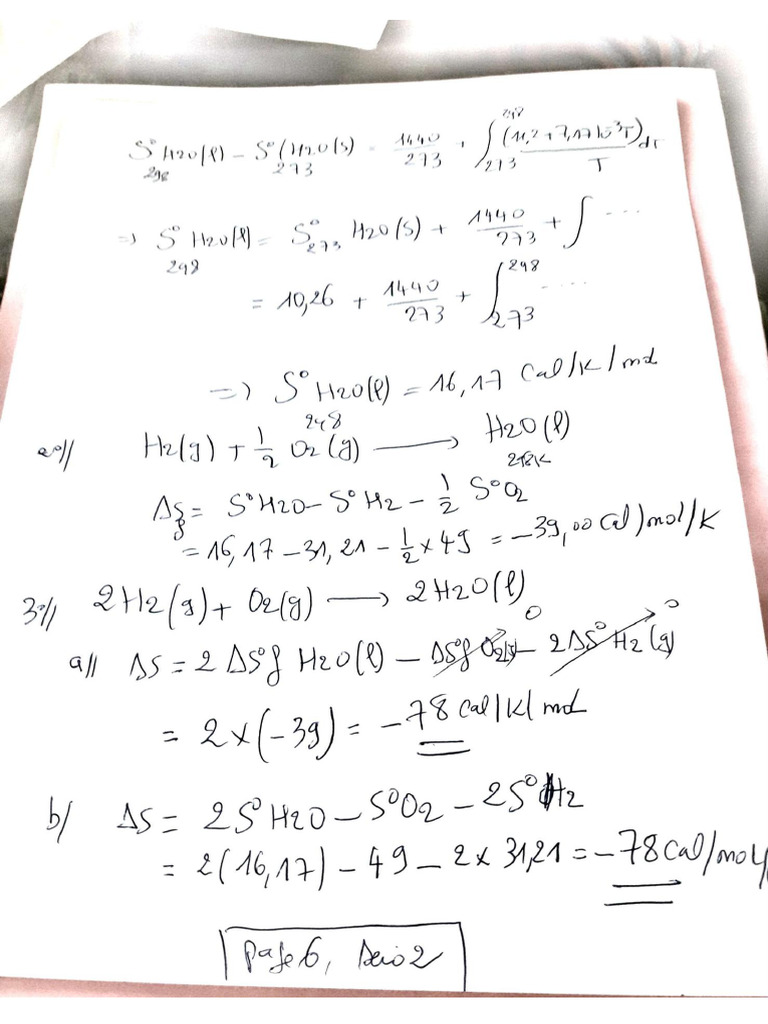 S° H2O(l) - S°(H2O(s) = 1440/273 + ∫ (11,2+7,17 10^-3 T)/T dT
298 273 273 298
=> S° H2O(l) = S°273 H2O(s) + 1440/273 + ∫ ...
298
= 10,26 + 1440/273 + ∫273 298 ....
=> S° H2O(l) = 16,17 Cal/K/mol
298
2°// H2(g) + 1/2 O2(g) ⟶ H2O(l)
298K
ΔSf = S°H2O - S°H2 - 1/2 S°O2
= 16,17 - 31,21 - 1/2 x 49 = -39,00 Cal/mol/K
3°// 2H2(g) + O2(g) ⟶ 2H2O(l)
a// ΔS = 2 ΔS°f H2O(l) - ΔS°f O2(g) 0 - 2ΔS° H2(g) 0
= 2 x (-39) = -78 Cal/K/mol
b/ ΔS = 2S°H2O - S°O2 - 2S°H2
= 2(16,17) - 49 - 2 x 31,21 = -78 Cal/mol/
Page 6,